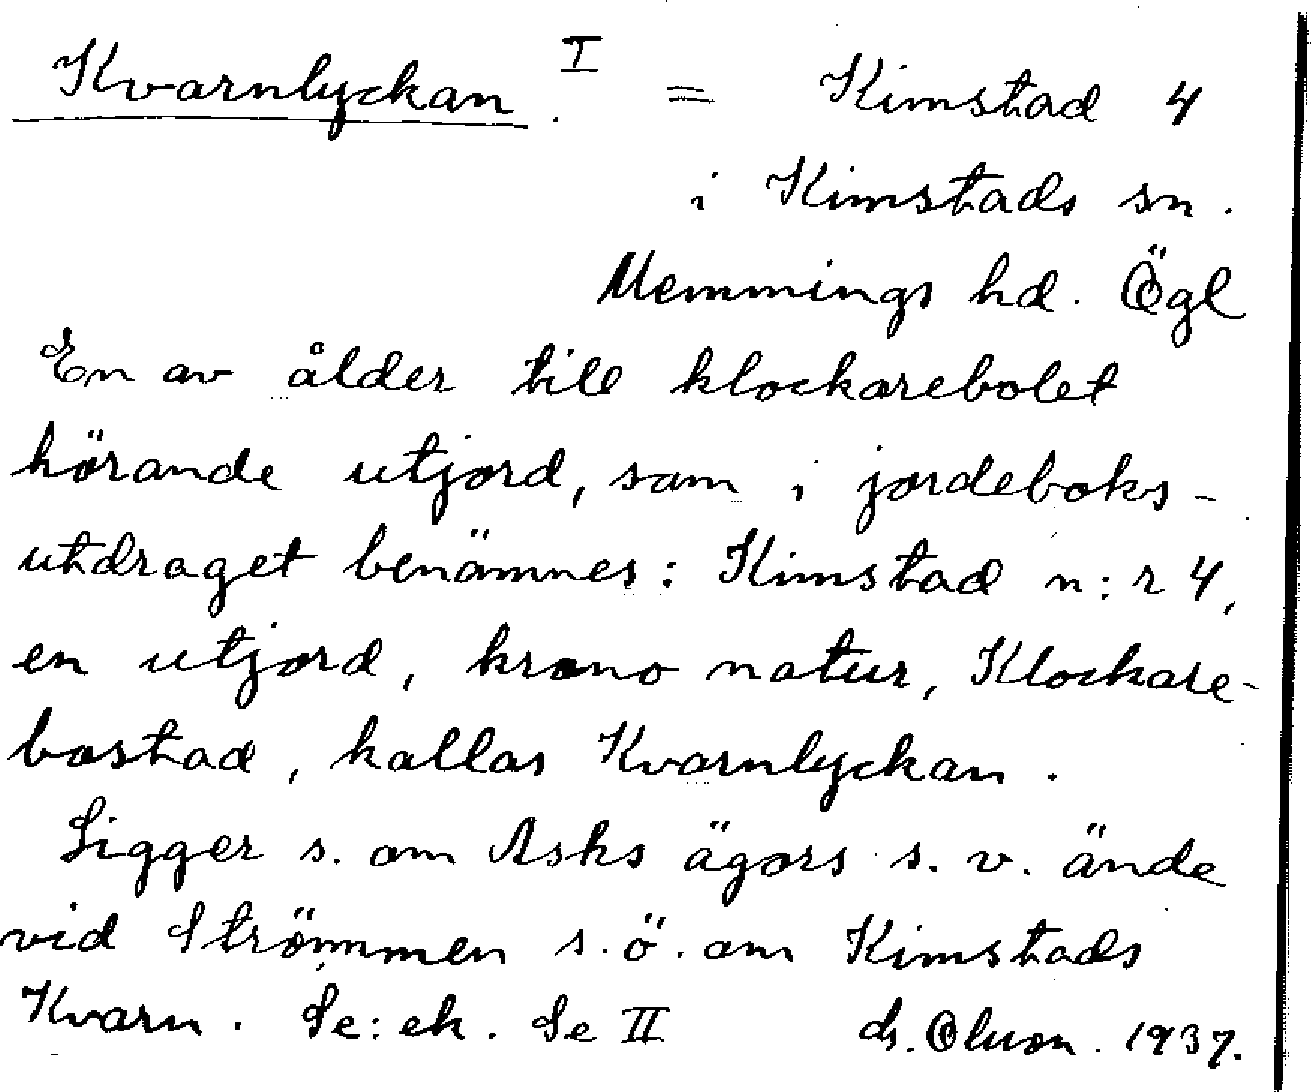 Kvarnlyckan. I = Kimstad 4
i Kimstads sn.
Memmings hd. Ögl
En av ålder till klockarebolet
hörande utjord, som i jordeboks-
utdraget benämnes: Kimstad n:r 4,
en utjord, krono natur, Klockare-
bostad, kallas Kvarnlyckan.
Ligger s. om Asks ägors s. v. ände
vid Strömmen s. ö. om Kimstads
Kvarn. Se: ek. Se II 1937.